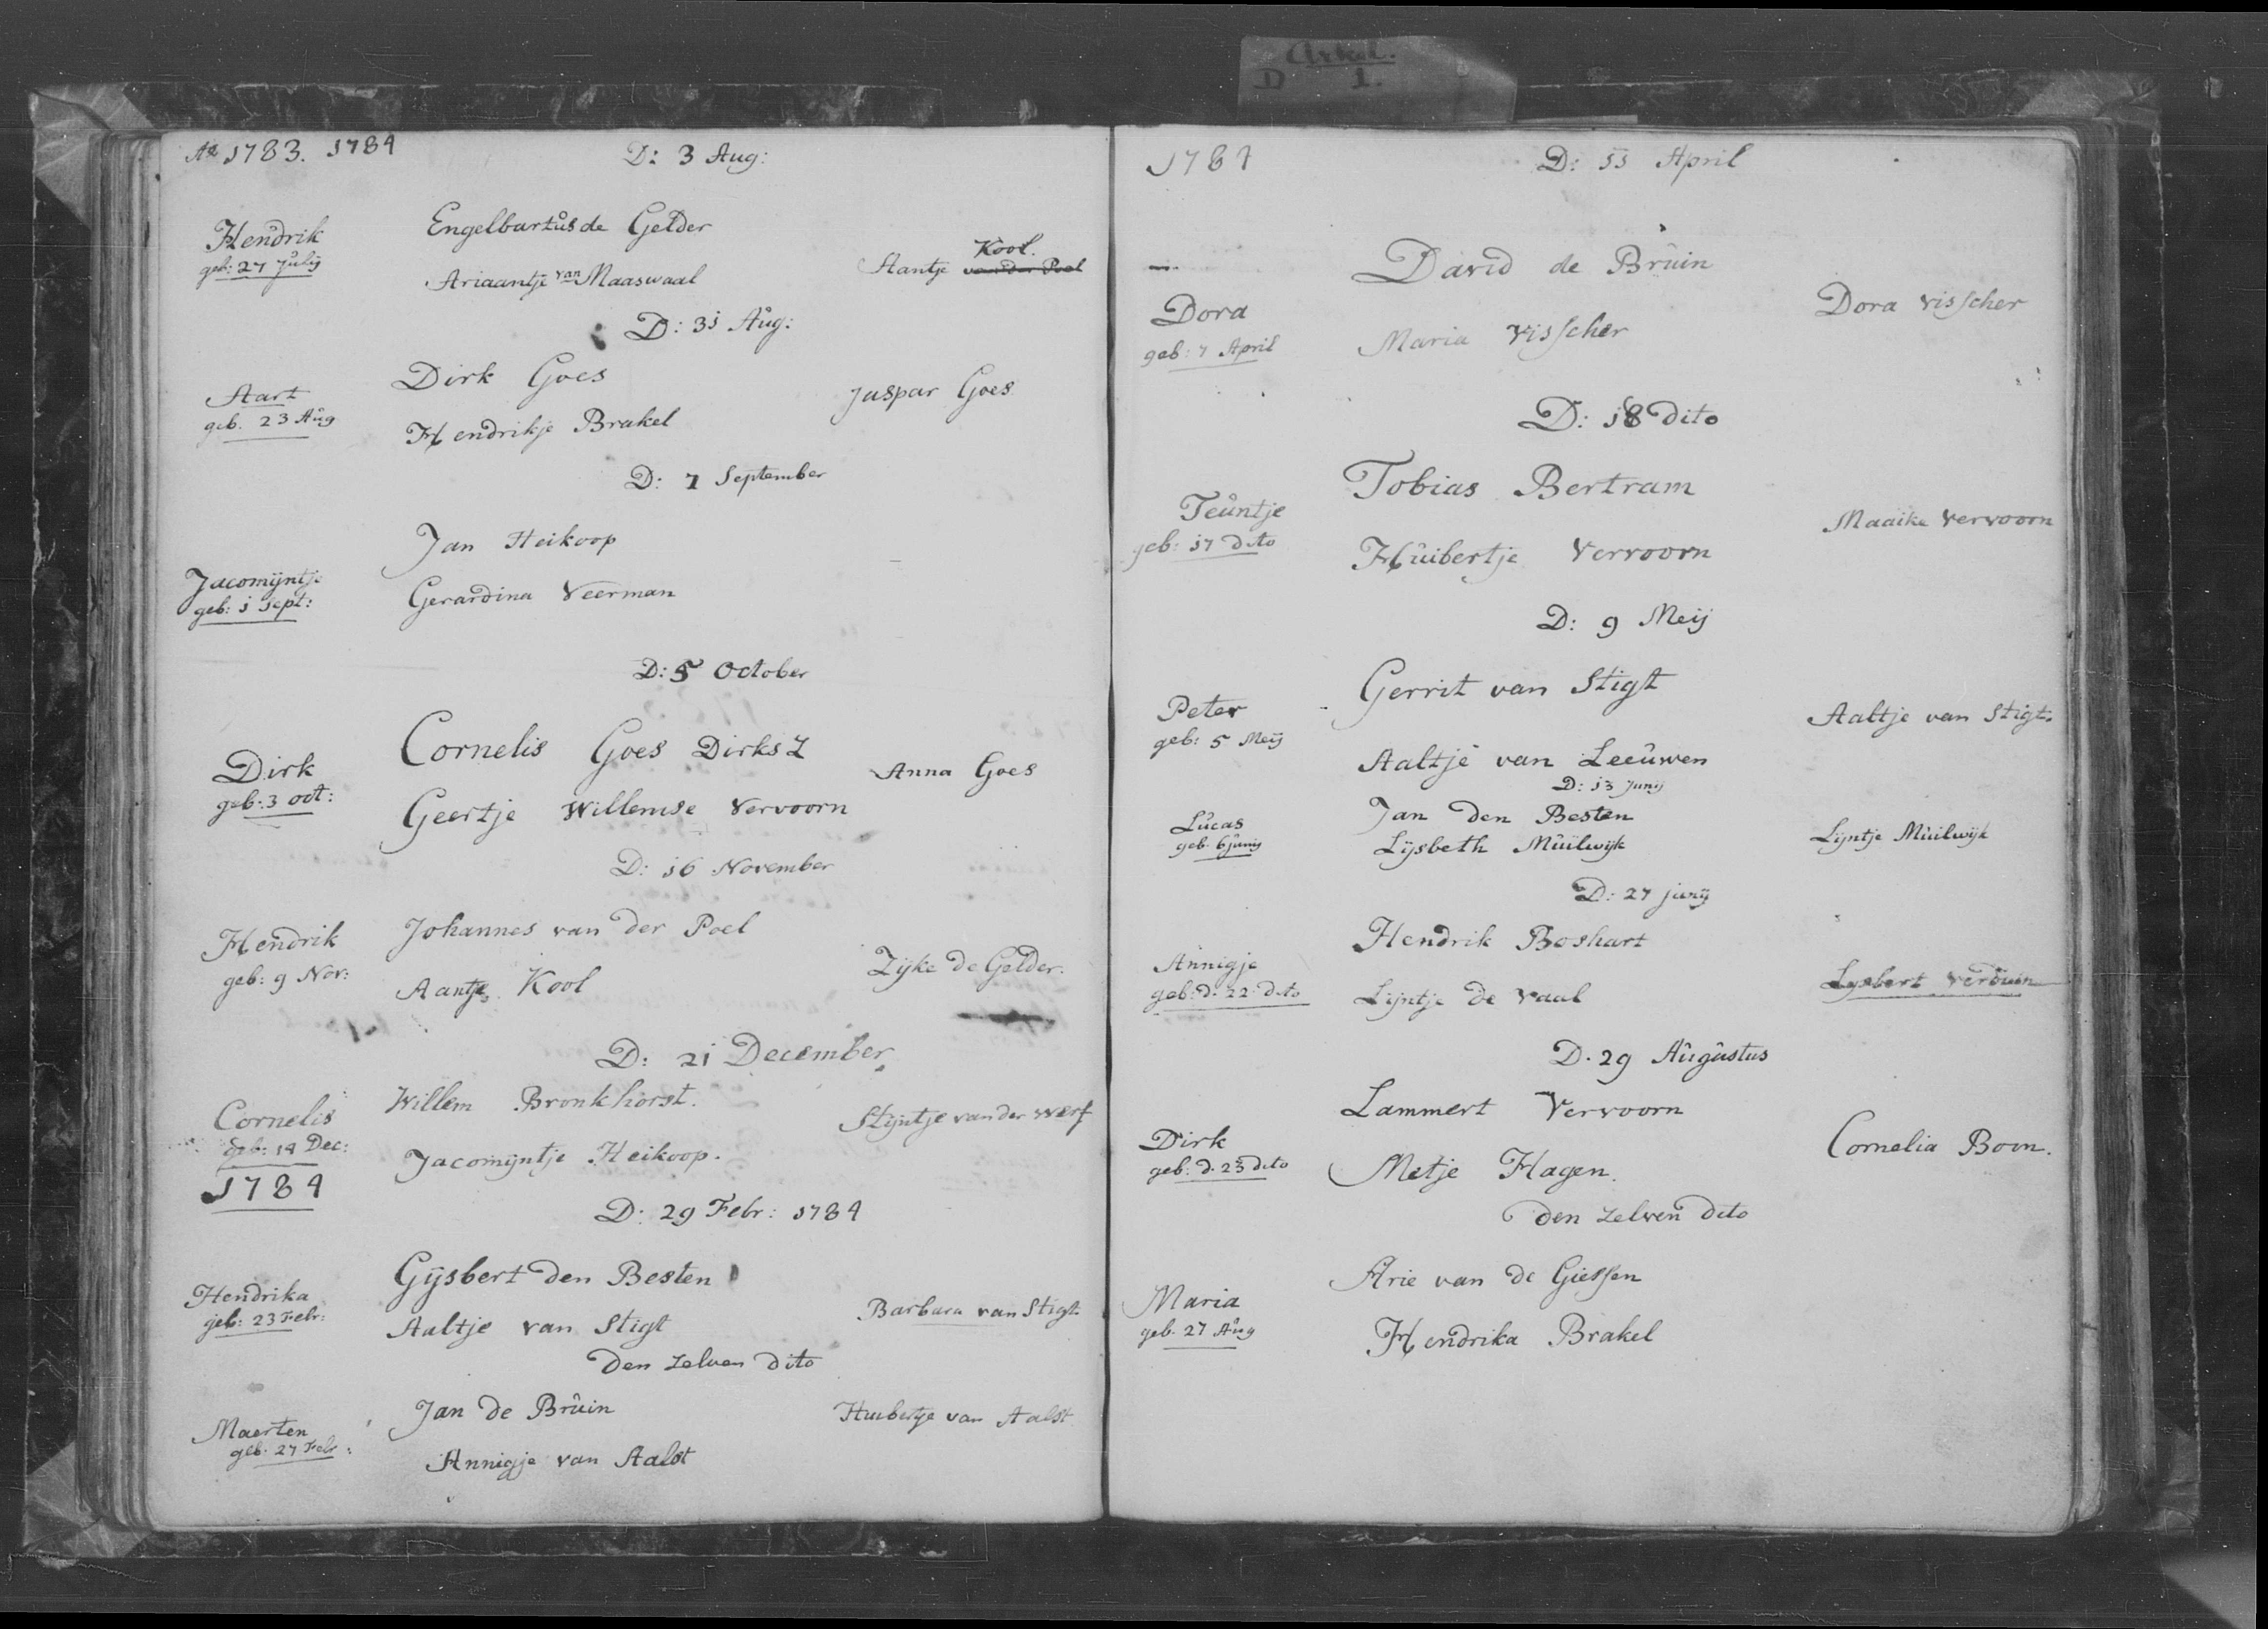 Arkel.
D 1.
Ao 1783. 1784
D: 3 Aug:
Hendrik
geb: 27 Julij
Engelbartus de Gelder
Ariaantje van Maaswaal
Kool.
Aantje van der Poel
D: 31 Aug:
Aart
geb. 23 Aug
Dirk Goes
Hendrikje Brakel
Jaspar Goes
D: 7 September
Jacomijntje
geb: 1 Sept:
Jan Heikoop
Gerardina Veerman
D: 5 October
Dirk
geb: 3 oct:
Cornelis Goes Dirks Z
Geertje Willemse Vervoorn
Anna Goes
D: 16 November
Hendrik
geb: 9 Nov:
Johannes van der Poel
Aantje Kool
Zijke de Gelder.
D: 21 December
Cornelis
geb: 14 Dec:
Willem Bronkhorst.
Jacomijntje Heikoop.
Stijntje van der Werf
1784
D: 29 Febr: 1784
Hendrika
geb: 23 Febr:
Gijsbert den Besten
Aaltje van Stigt
Barbara van Stigt
den zelven dito
Maerten
geb. 27 Febr:
Jan de Bruin
Annigje van Aalst
Huibertje van Aalst
1784
D: 11 April
Dora
geb: 7 April
David de Bruin
Maria Visscher
Dora Visscher
D: 18 dito
Teuntje
geb: 17 dito
Tobias Bertram
Huibertje Vervoorn
Maaike Vervoorn
D: 9 Meij
Peter
geb: 5 Meij
Gerrit van Stigt
Aaltje van Leeuwen
Aaltje van Stigt.
D: 13 Junij
Lucas
geb. 6 junij
Jan den Besten
Lijsbeth Muilwijk
Lijntje Muilwijk
D: 27 junij
Annigje
geb: d. 22 dito
Hendrik Boshart
Lijntje de Vaal
Lysbert Verduin
D. 29 Augustus
Dirk
geb: d. 23 dito
Lammert Vervoorn
Metje Hagen.
Cornelia Boon.
den zelven dito
Maria
geb. 27 Aug
Arie van de Giessen
Hendrika Brakel